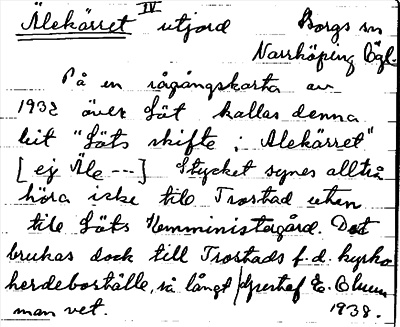 Ålekärret IV utjord Borgs sn
Norrköping Ögl.
På en rågångskarta av
1932 över Löt kallas denna
bit "Löts skifte i Ålekärret"
[ej Äle ---] Stycket synes alltså
höra icke till Trostad utan
till Löts Komministergård. Det
brukas dock till Trostads f.d. kyrko
herdeboställe, så långt
man vet. 1938.